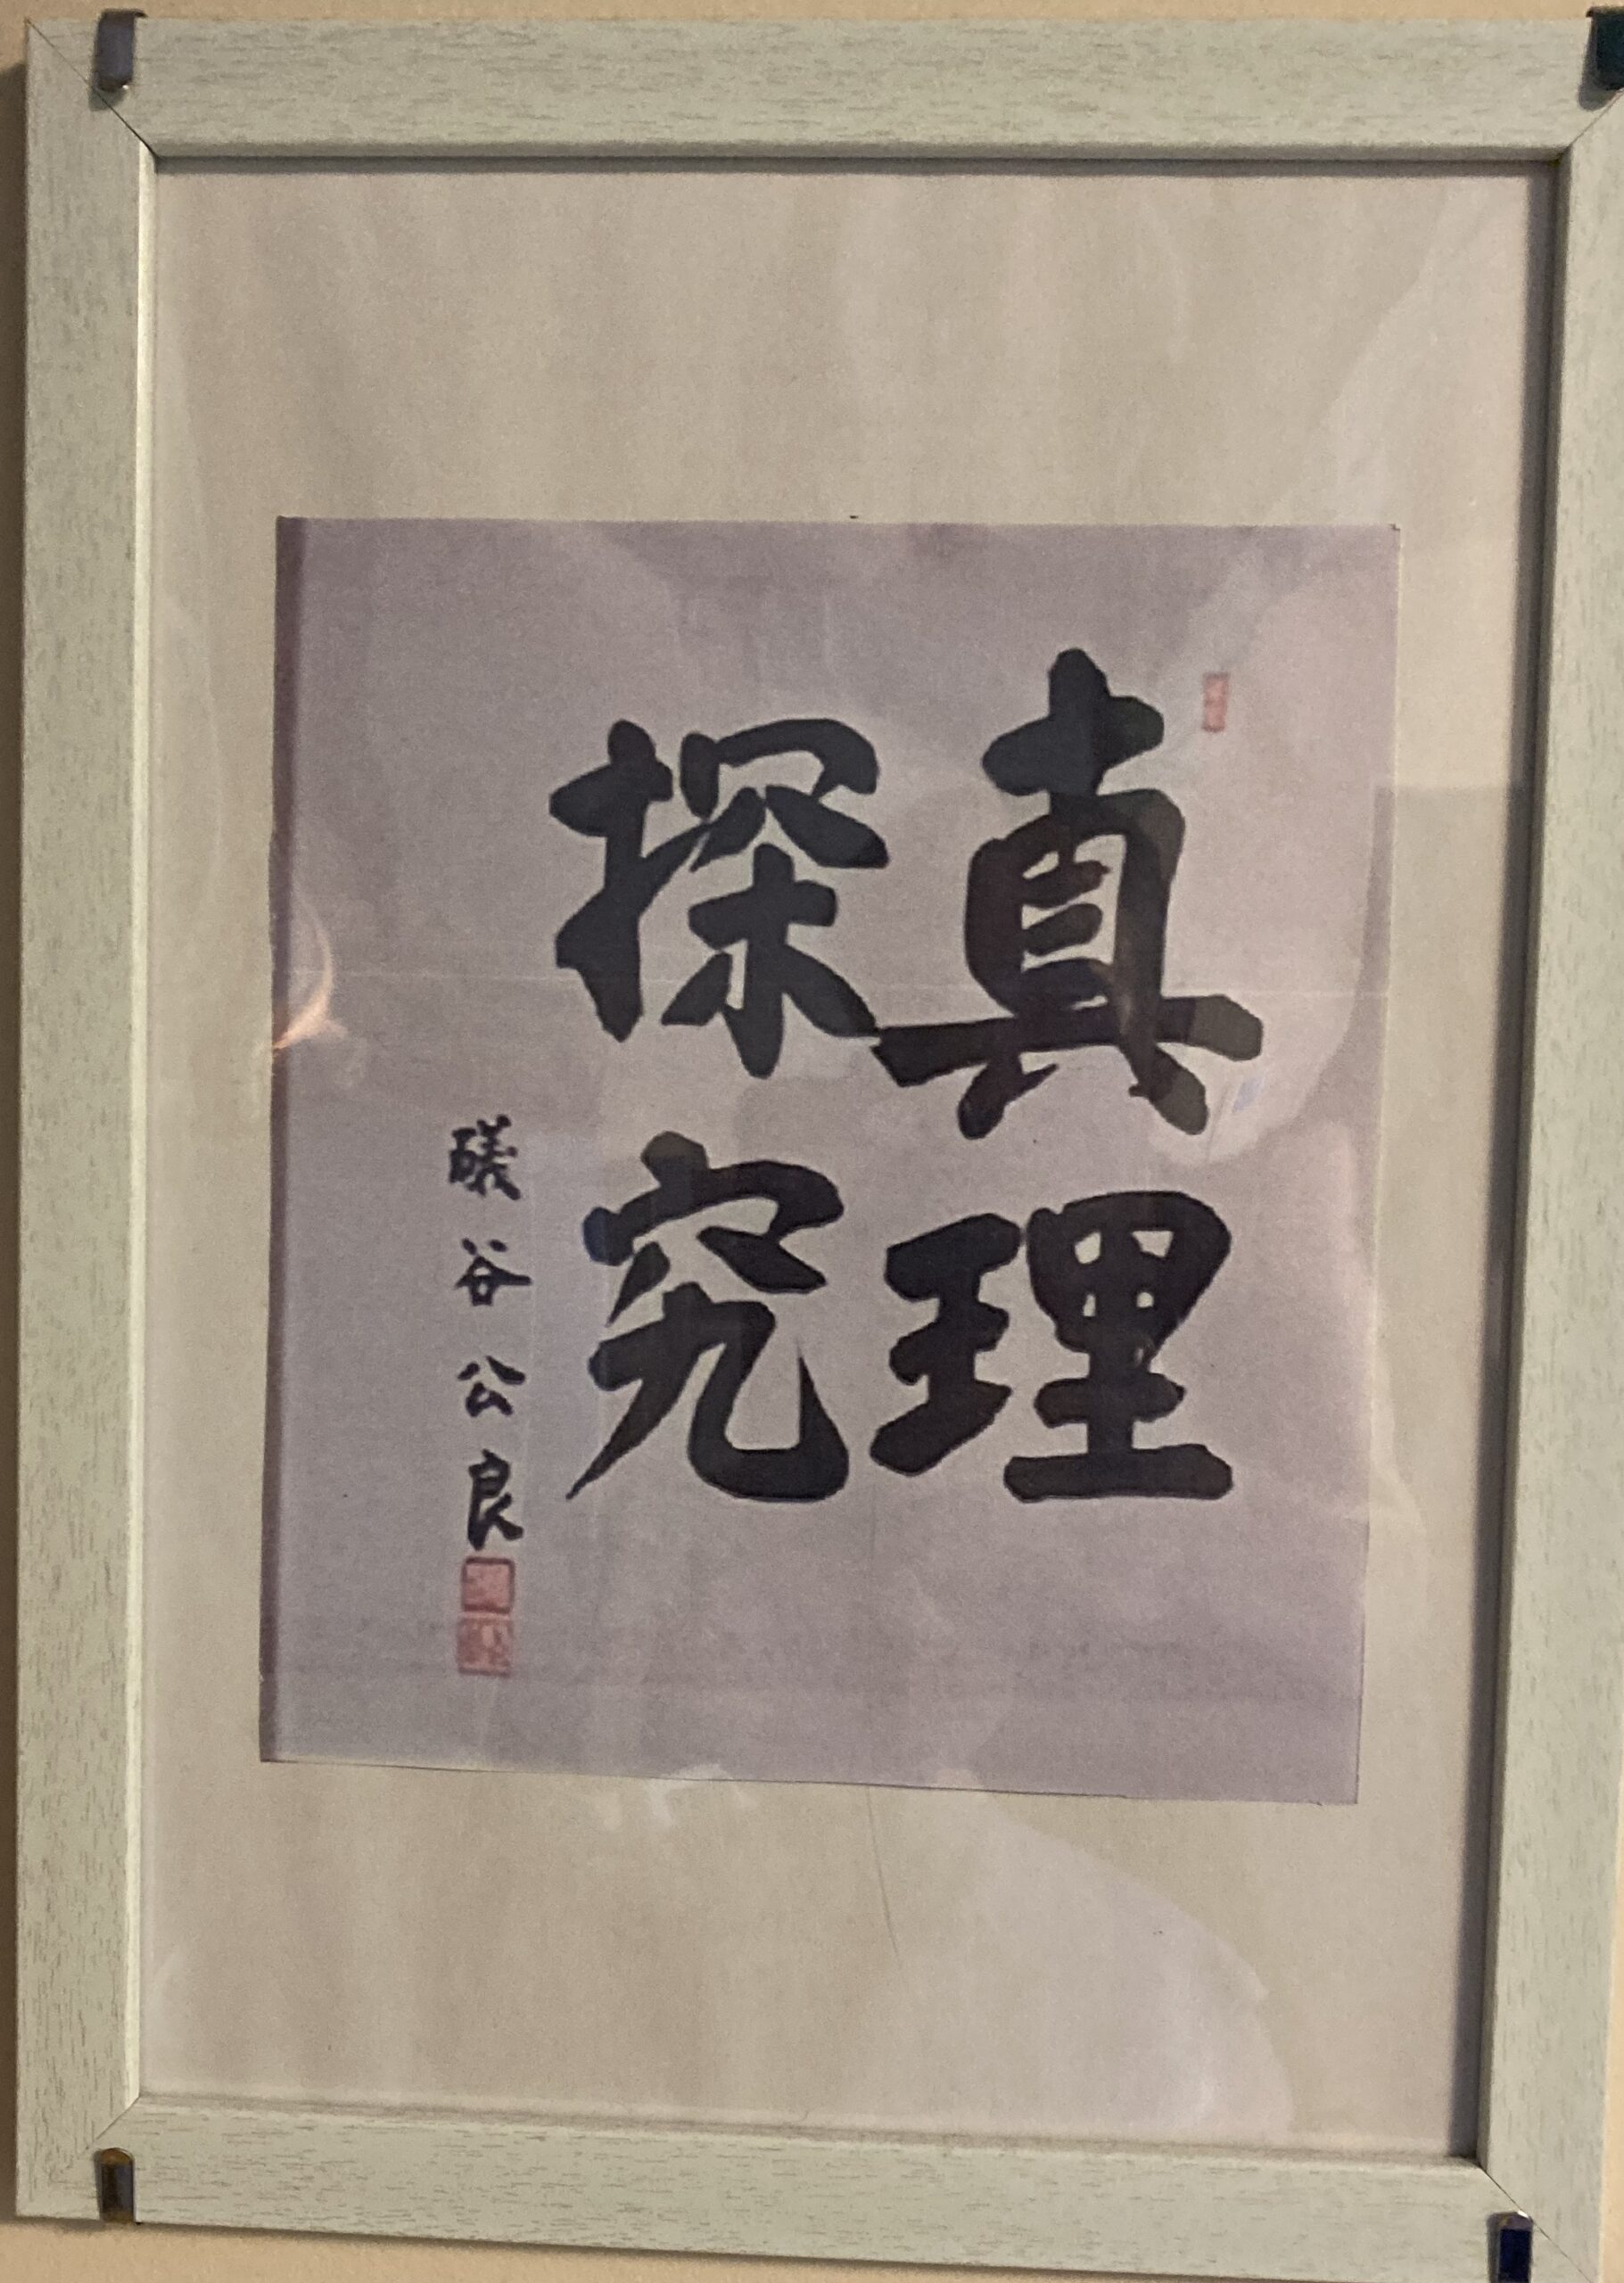 真理
探究
礒谷公良